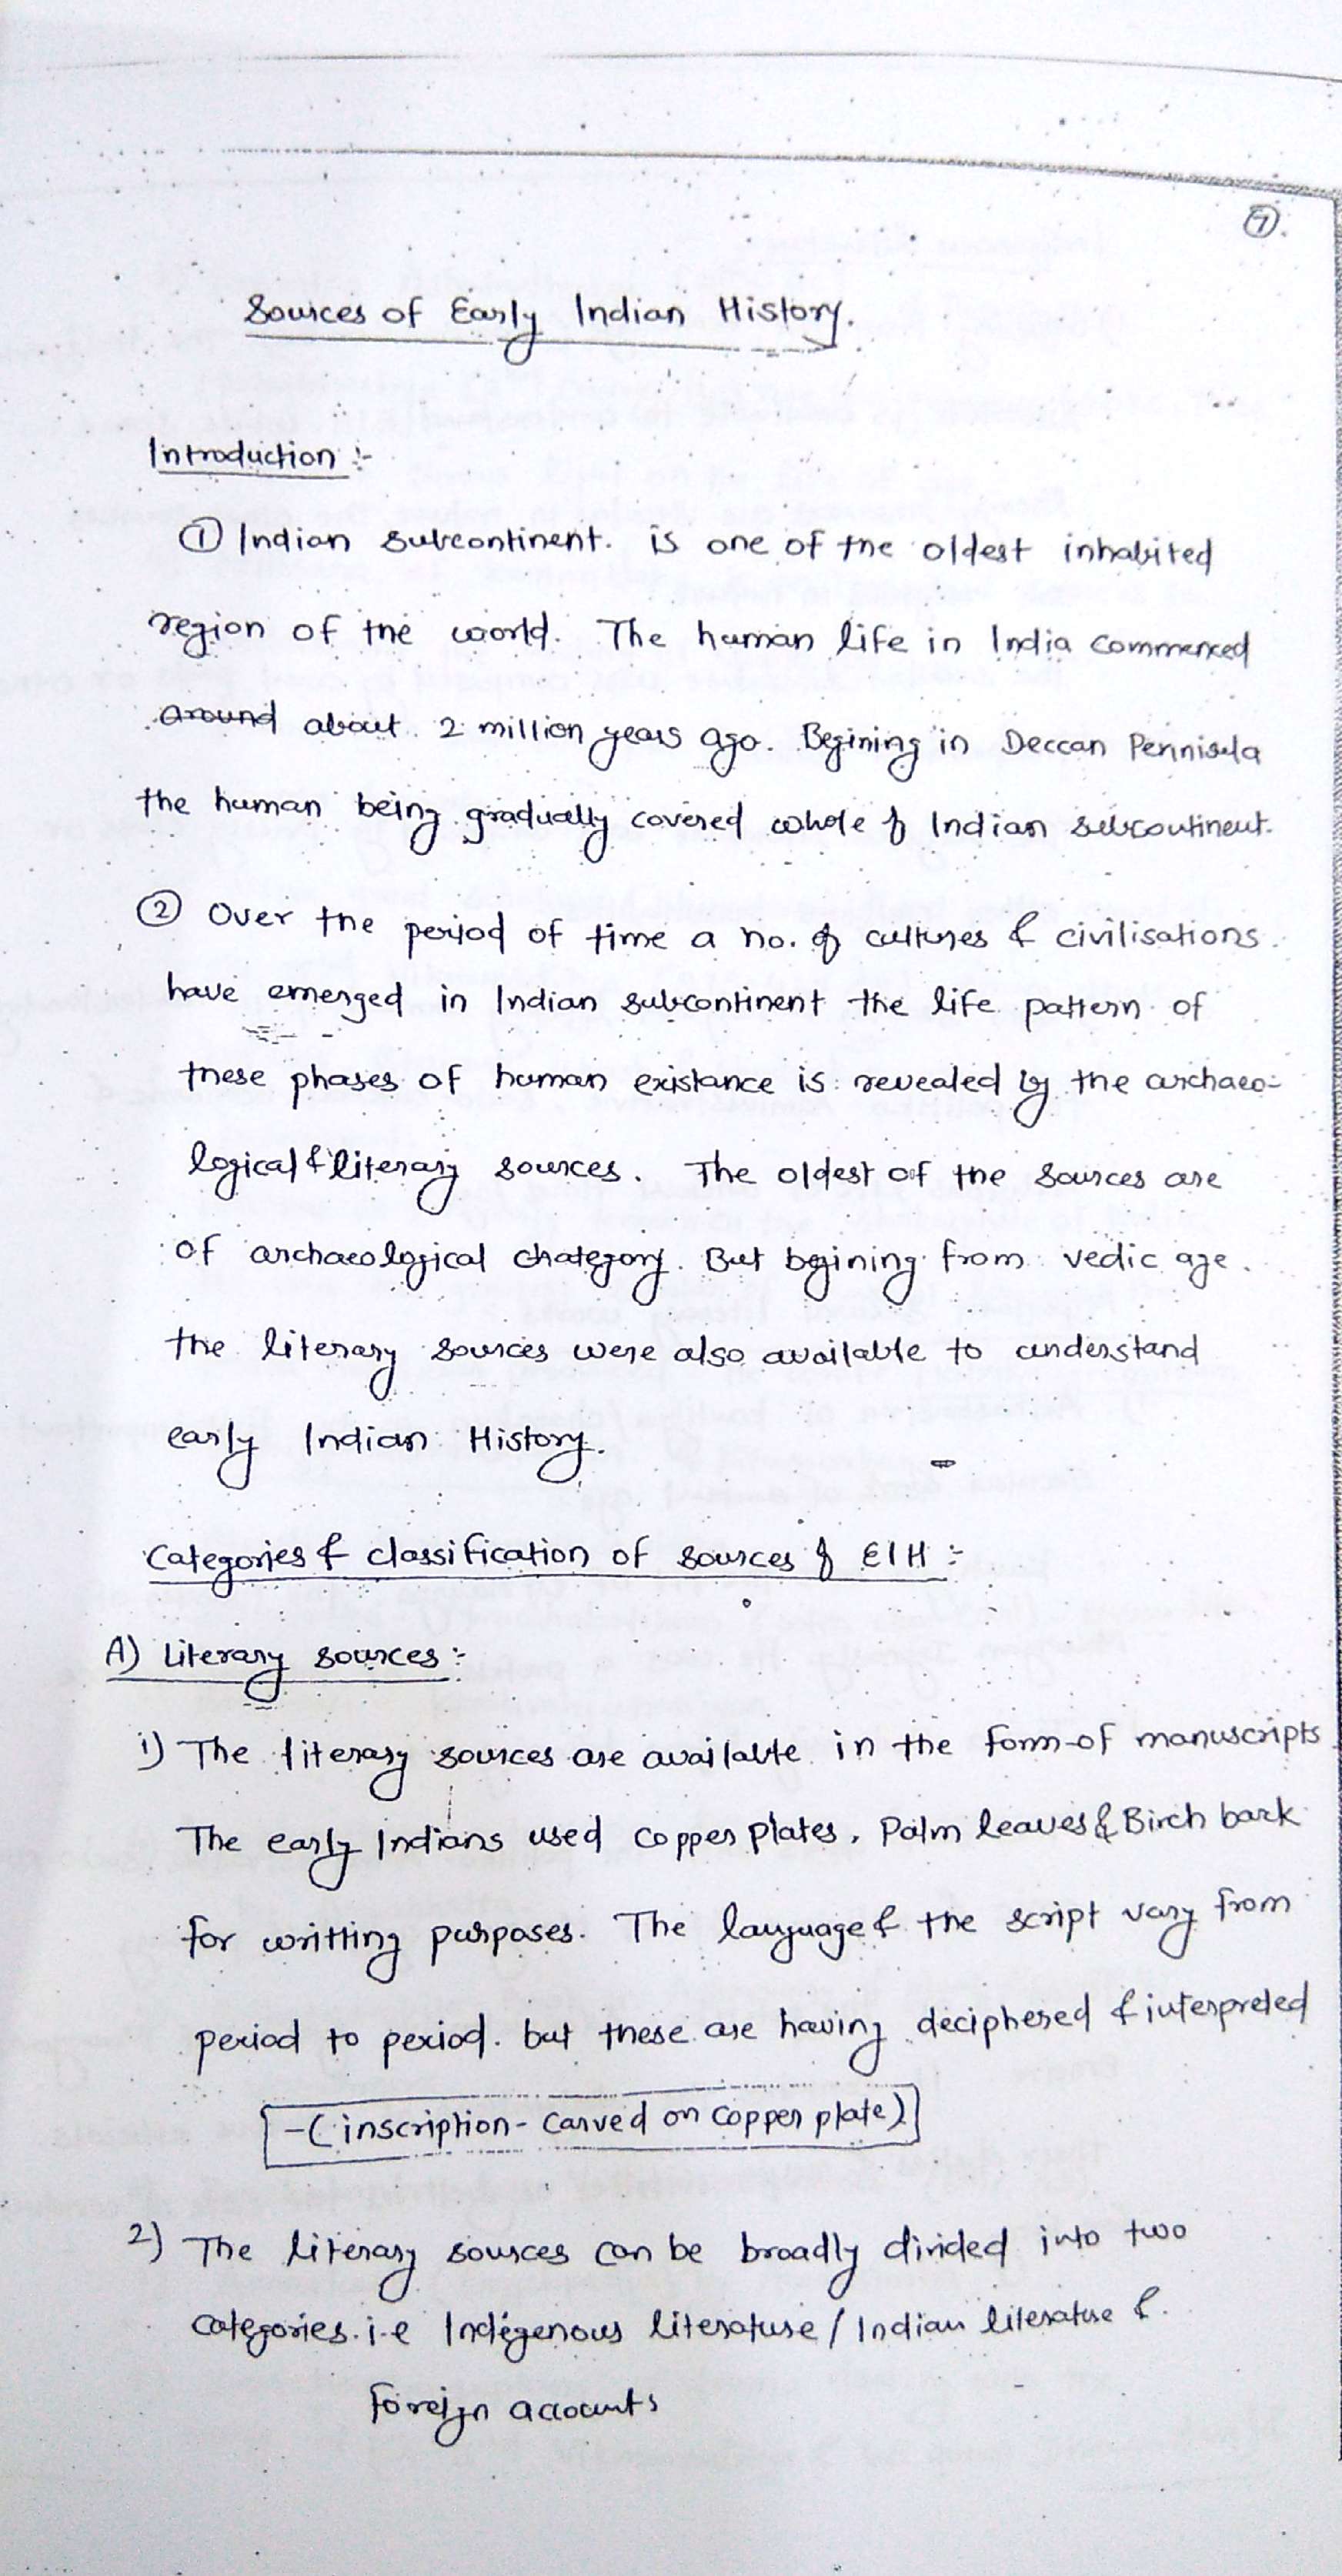 7.
Sources of Early Indian History.
Introduction :-
① Indian subcontinent. is one of the oldest inhabited
region of the world. The human life in India commenced
around about 2 million years ago. Begining in Deccan Pennisula
the human being gradually covered whole of Indian subcontinent.
② Over the period of time a no. of cultures & civilisations
have emerged in Indian subcontinent the life pattern of
these phases of human existance is revealed by the archaeo-
logical & literary sources. The oldest of the sources are
of archaeological chategory. But begining from vedic age
the literary sources were also available to understand
early Indian History.
Categories & classification of sources of EIH :-
A) Literary sources :-
1) The literary sources are available in the form of manuscripts
The early Indians used copper plates, Palm leaves & Birch bark
for writting purpases. The language & the script vary from
period to period. but these are having deciphered & interpreted
-( inscription - carved on copper plate)
2) The literary sources can be broadly divided into two
categories. i.e Indegenous literature / Indian literature &
foreign accounts